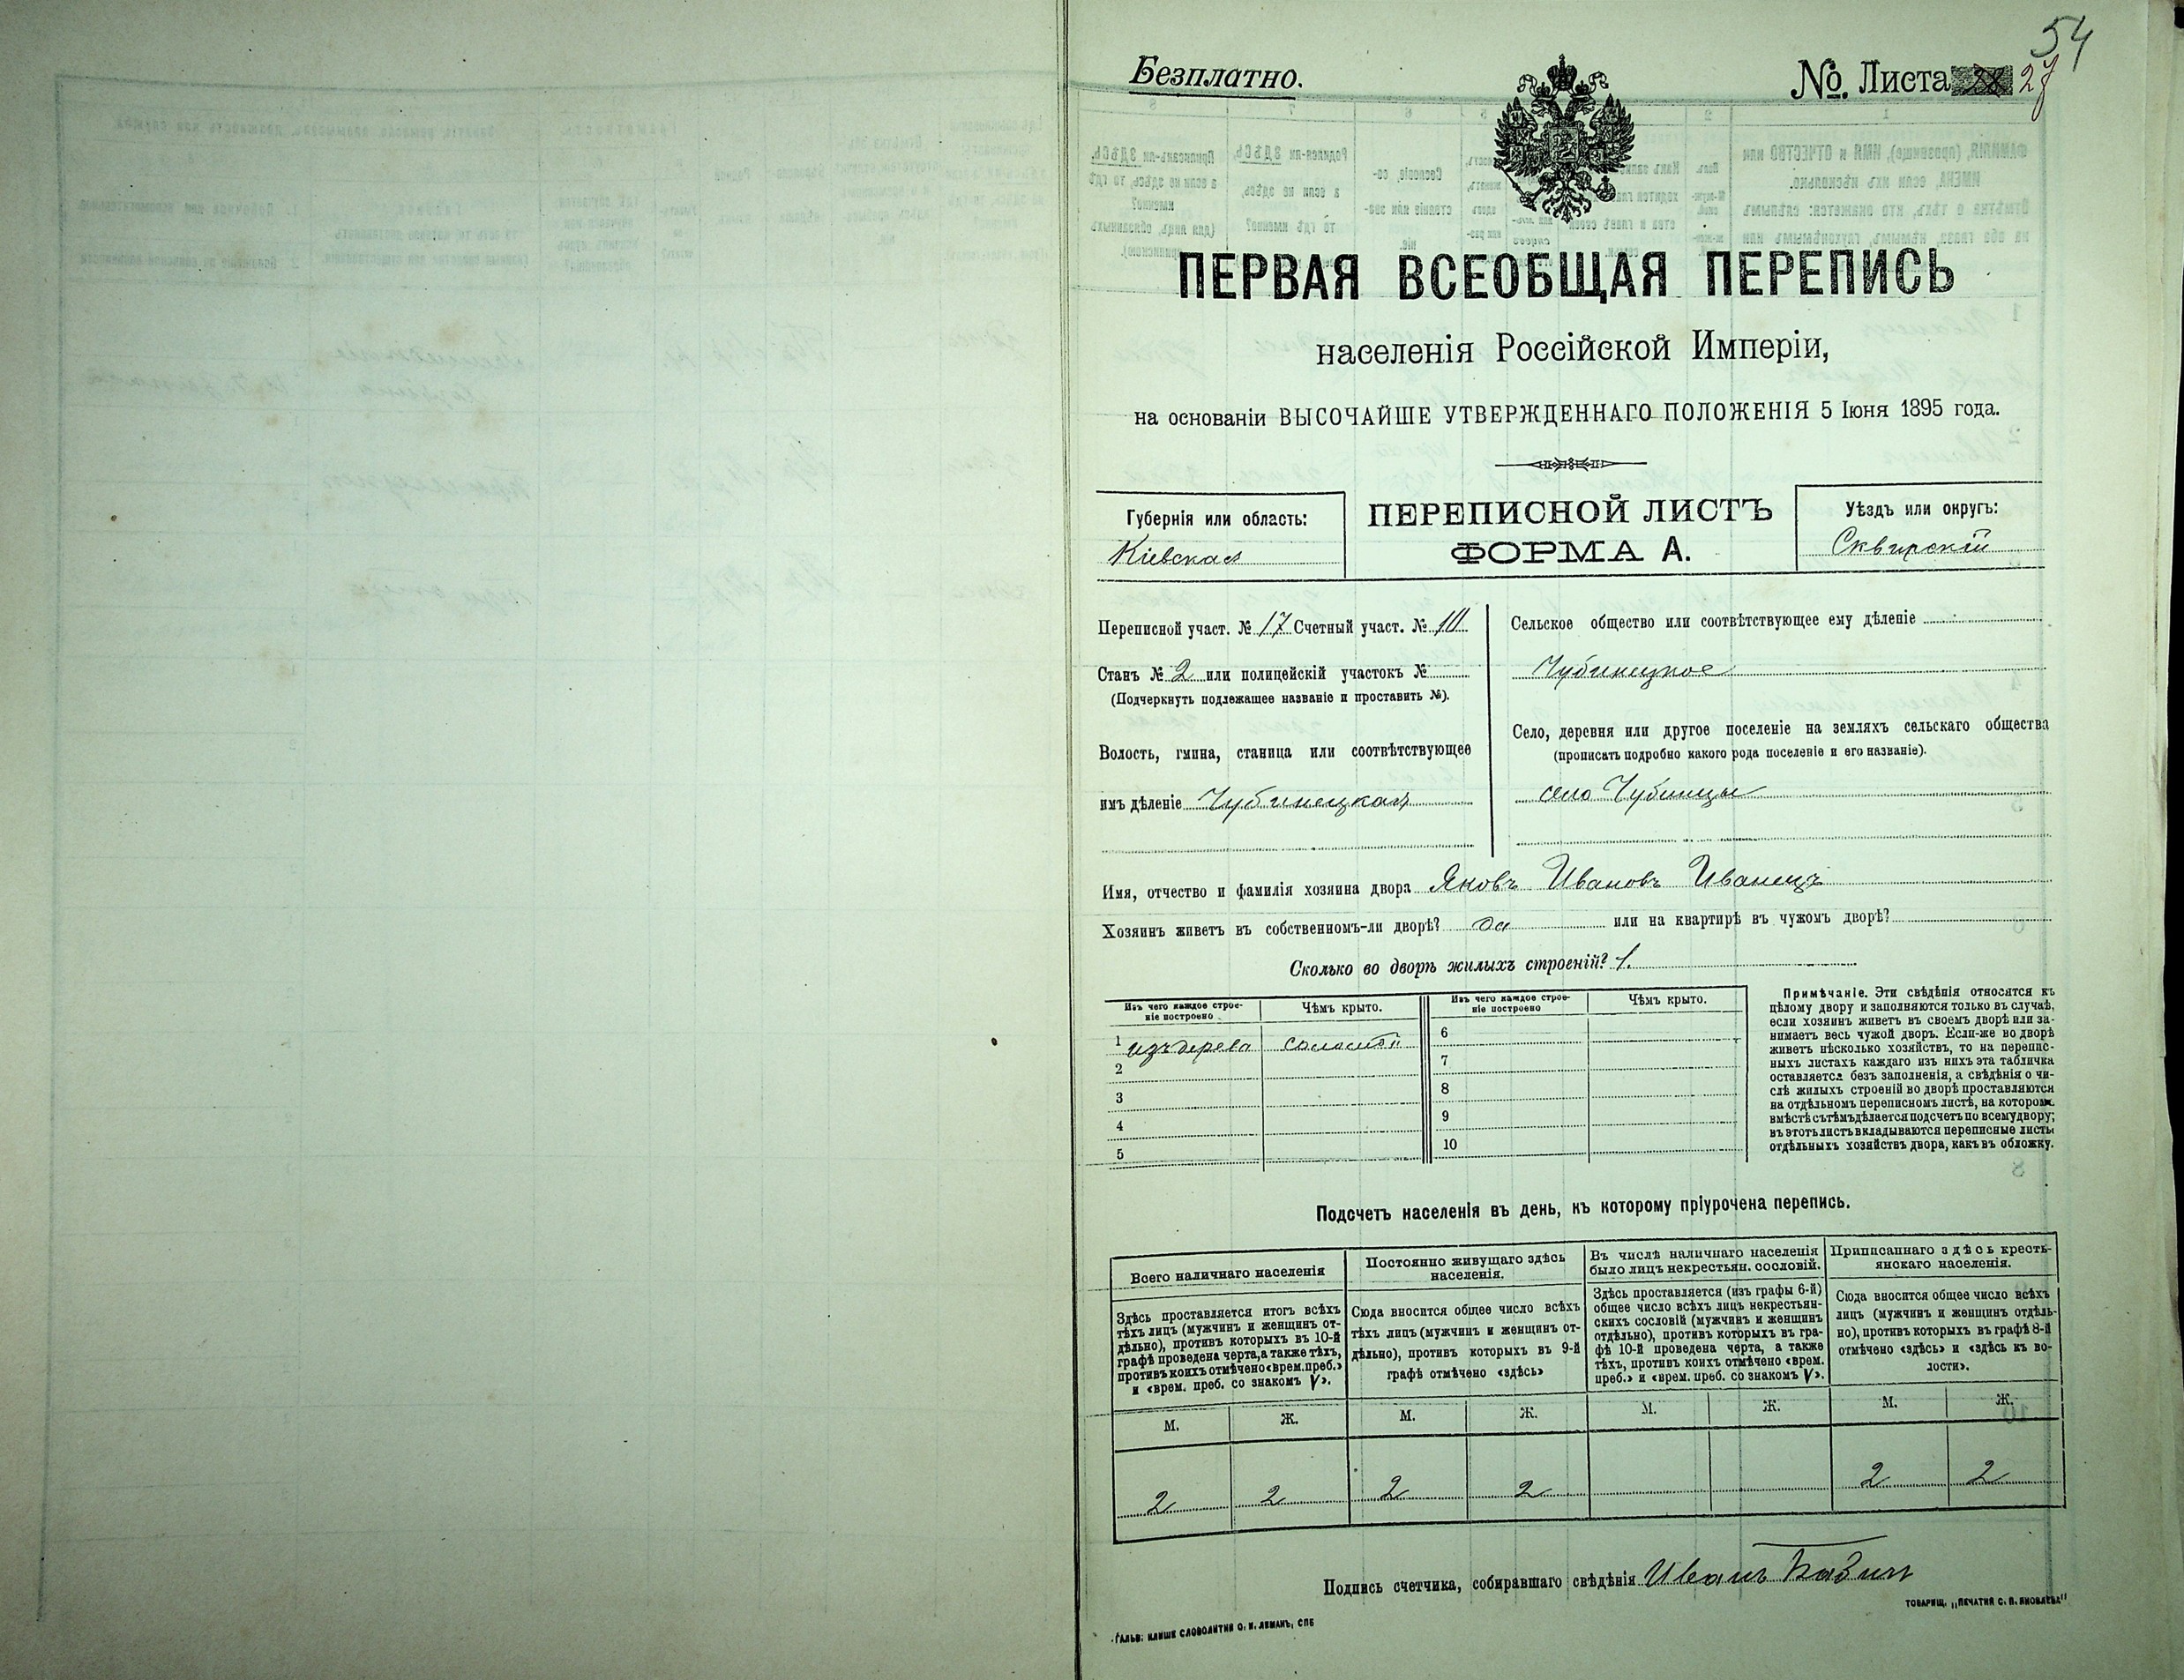 54
Безплатно.
№. Листа 27
ПЕРВАЯ ВСЕОБЩАЯ ПЕРЕПИСЬ
населенія Россійской Имперіи,
на основаніи ВЫСОЧАЙШЕ УТВЕРЖДЕННАГО ПОЛОЖЕНІЯ 5 Іюня 1895 года.
Губернія или область:
Кіевская
ПЕРЕПИСНОЙ ЛИСТЪ
ФОРМА А.
Уѣздъ или округъ:
Сквирскій
Переписной участ. № 17 Счетный участ. № 10
Станъ № 2 или полицейскій участокъ №
(Подчеркнуть подлежащее названіе и проставить №).
Волость, гмина, станица или соотвѣтствующее
имъ дѣленіе Чубинецкая
Сельское общество или соотвѣтствующее ему дѣленіе
Чубинецкое
Село, деревня или другое поселеніе на земляхъ сельскаго общества
(прописать подробно какого рода поселеніе и его названіе).
село Чубинцы
Имя, отчество и фамилія хозяина двора Яковъ Ивановъ Иванецъ
Хозяинъ живетъ въ собственномъ-ли дворѣ? да или на квартирѣ въ чужомъ дворѣ?
Сколько во дворѣ жилыхъ строеній? 1.
Изъ чего каждое строе-
ніе построено
Чѣмъ крыто.
1 изъ дерева соломой
2
3
4
5
Изъ чего каждое строе-
ніе построено
Чѣмъ крыто.
6
7
8
9
10
Примѣчаніе. Эти свѣдѣнія относятся къ
цѣлому двору и заполняются только въ случаѣ,
если хозяинъ живетъ въ своемъ дворѣ или за-
нимаетъ весь чужой дворъ. Если-же во дворѣ
живетъ нѣсколько хозяйствъ, то на перепис-
ныхъ листахъ каждаго изъ нихъ эта табличка
оставляется безъ заполненія, а свѣдѣнія о чи-
слѣ жилыхъ строеній во дворѣ проставляются
на отдѣльномъ переписномъ листѣ, на которомъ
вмѣстѣ съ тѣмъ дѣлается подсчетъ по всему двору;
въ этотъ листъ вкладываются переписные листы
отдѣльныхъ хозяйствъ двора, какъ въ обложку.
Подсчетъ населенія въ день, къ которому пріурочена перепись.
Всего наличнаго населенія
Здѣсь проставляется итогъ всѣхъ
тѣхъ лицъ (мужчинъ и женщинъ от-
дѣльно), противъ которыхъ въ 10-й
графѣ проведена черта, а также тѣхъ,
противъ коихъ отмѣчено «врем. преб.»
и «врем. преб. со знакомъ V».
Постоянно живущаго здѣсь
населенія.
Сюда вносится общее число всѣхъ
тѣхъ лицъ (мужчинъ и женщинъ от-
дѣльно), противъ которыхъ въ 9-й
графѣ отмѣчено «здѣсь»
Въ числѣ наличнаго населенія
было лицъ некрестьян. сословій.
Здѣсь проставляется (изъ графы 6-й)
общее число всѣхъ лицъ некрестьян-
скихъ сословій (мужчинъ и женщинъ
отдѣльно), противъ которыхъ въ гра-
фѣ 10-й проведена черта, а также
тѣхъ, противъ коихъ отмѣчено «врем.
преб.» и «врем. преб. со знакомъ V».
Приписаннаго здѣсь кресть-
янскаго населенія.
Сюда вносится общее число всѣхъ
лицъ (мужчинъ и женщинъ отдѣль-
но), противъ которыхъ въ графѣ 8-й
отмѣчено «здѣсь» и «здѣсь къ во-
лости».
М. Ж. М. Ж. М. Ж. М. Ж.
2 2 2 2 2 2
Подпись счетчика, собиравшаго свѣдѣнія Иванъ
ГАЛЬВ. КЛИШЕ СЛОВОЛИТНИ О. И. ЛЕМАНЪ, СПБ
ТОВАРИЩ. „ПЕЧАТНЯ С. П. ЯКОВЛЕВА"